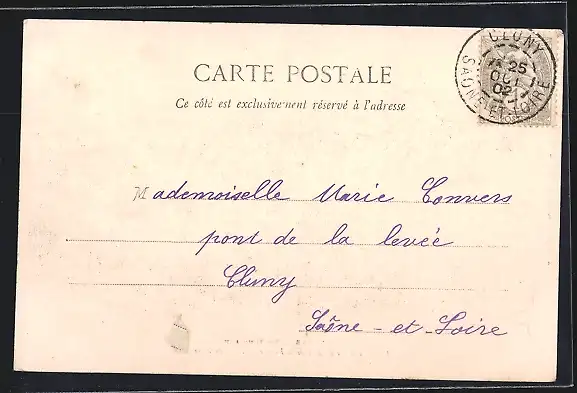 CLUNY
25
OCT
02
SAONE-ET-LOIRE
CARTE POSTALE
Ce côté est exclusivement réservé à l'adresse
Mademoiselle Marie Convers
pont de la levée
Cluny
Saône-et-Loire